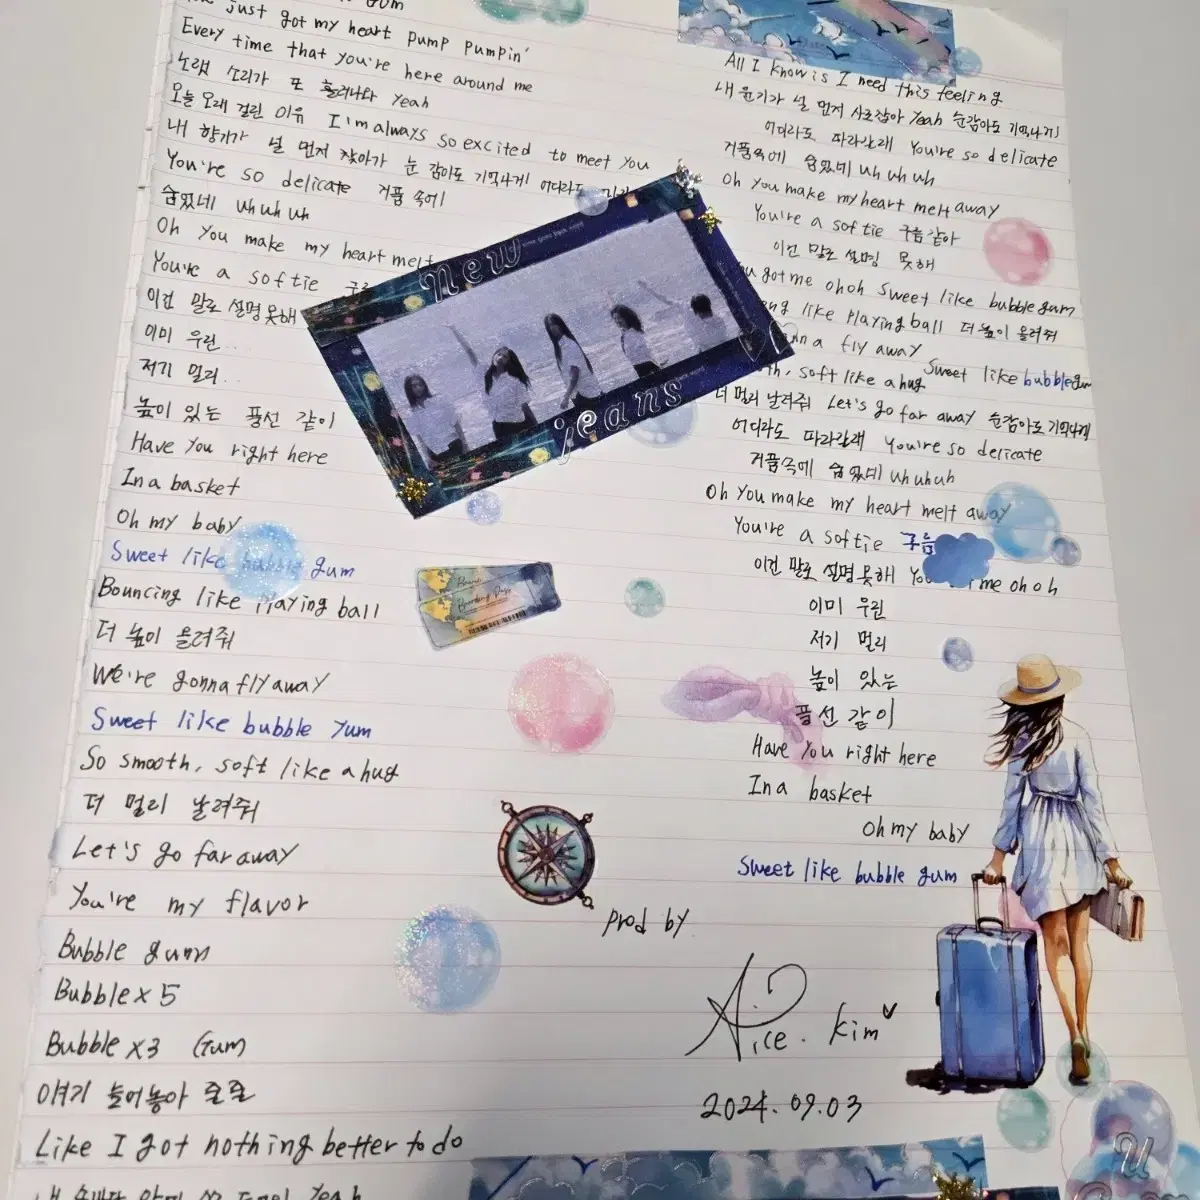 just got my heart pump pumpin'
Every time that you're here around me
노랫 소리가 또 흘러나와 Yeah
오늘 오래 걸린 이유 I'm always so excited to meet you
내 향기가 널 먼저 찾아가 눈 감아도 기억나게 어디라도
You're so delicate 거품 속에
숨었네 uh uh uh
Oh You make my heart melt
You're a softie 구름
이건 말로 설명못해
이미 우린..
저기 멀리..
높이 있는 풍선 같이
Have You right here
In a basket
Oh my baby
Sweet like bubble gum
Bouncing like playing ball
더 높이 올려줘
We're gonna fly away
Sweet like bubble yum
So smooth, soft like a hug
더 멀리 날려줘
Let's go far away
You're my flavor
Bubble gum
Bubble x 5
Bubble x3 Gum
얘기 늘어놓아 줄줄
Like I got nothing better to do
Yeah
new
jeans
Boarding Pass
All I know is I need this feeling
내 온기가 널 먼저 사로잡아 Yeah 눈감아도 기억나게
어디라도 따라갈래 You're so delicate
거품속에 숨었네 uh uh uh
Oh You make my heart melt away
You're a softie 구름같아
이건 말로 설명 못해
got me ohoh sweet like bubble gum
like playing ball 더 높이 올려줘
fly away
Sweet like bubble gum
soft like a hug
더 멀리 날려줘 Let's go far away 눈감아도 기억나게
어디라도 따라갈래 You're so delicate
거품속에 숨었네 uh uh uh
Oh You make my heart melt away
You're a softie 구름
이건 말로 설명못해 me oh oh
이미 우린
저기 멀리
높이 있는
풍선 같이
Have You right here
In a basket
Oh my baby
Sweet like bubble gum
prod by.
Alice. kim
2024.09.03
u